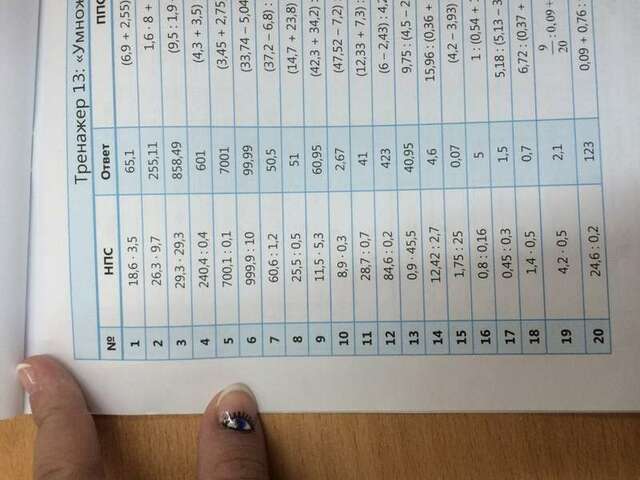 Тренажер 13: «Умнож
№ НПС Ответ ППС
1 18,6 · 3,5 65,1 (6,9 + 2,55)
2 26,3 · 9,7 255,11 1,6 · 8 +
3 29,3 · 29,3 858,49 (9,5 : 1,9
4 240,4 : 0,4 601 (4,3 + 3,5)
5 700,1 : 0,1 7001 (3,45 + 2,75
6 999,9 : 10 99,99 (33,74 – 5,04
7 60,6 : 1,2 50,5 (37,2 – 6,8) :
8 25,5 : 0,5 51 (14,7 + 23,8)
9 11,5 · 5,3 60,95 (42,3 + 34,2) :
10 8,9 · 0,3 2,67 (47,52 – 7,2)
11 28,7 : 0,7 41 (12,33 + 7,3) :
12 84,6 : 0,2 423 (6 – 2,43) : 4,2
13 0,9 · 45,5 40,95 9,75 : (4,5 – 2
14 12,42 : 2,7 4,6 15,96 : (0,36 +
15 1,75 : 25 0,07 (4,2 – 3,93)
16 0,8 : 0,16 5 1 : (0,54 +
17 0,45 : 0,3 1,5 5,18 : (5,13 –
18 1,4 · 0,5 0,7 6,72 : (0,37 +
19 4,2 · 0,5 2,1 9/20 : 0,09 +
20 24,6 : 0,2 123 0,09 + 0,76 :